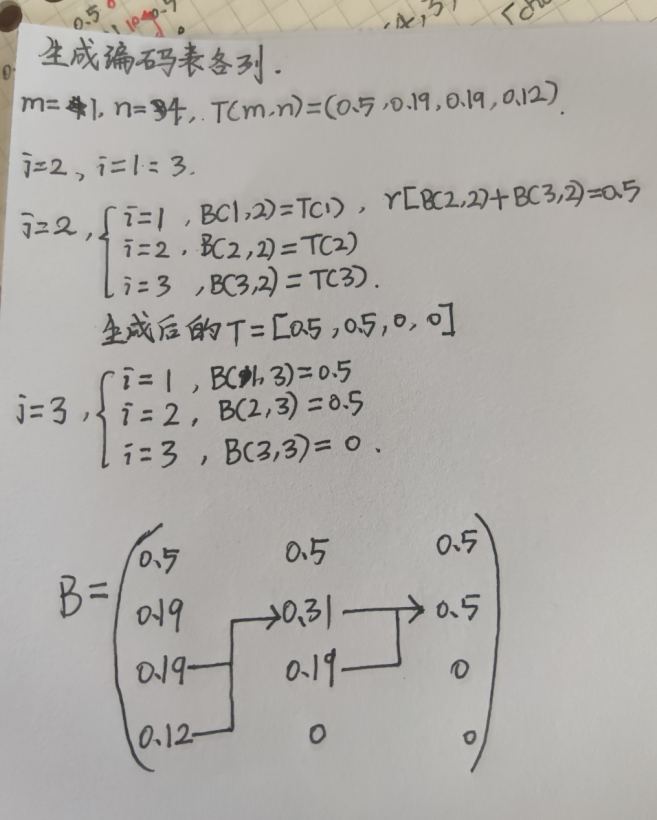 0.5
生成编码表各列.
m=1, n=4, T(m,n)=(0.5,0.19,0.19,0.12).
j=2, i=1:3.
j=2, i=1, B(1,2)=T(1), r[B(2,2)+B(3,2)=0.5
i=2, B(2,2)=T(2)
i=3, B(3,2)=T(3).
生成后的T=[0.5,0.5,0,0]
j=3, i=1, B(1,3)=0.5
i=2, B(2,3)=0.5
i=3, B(3,3)=0.
B=
0.5 0.5 0.5
0.19 0.31 0.5
0.19 0.19 0
0.12 0 0